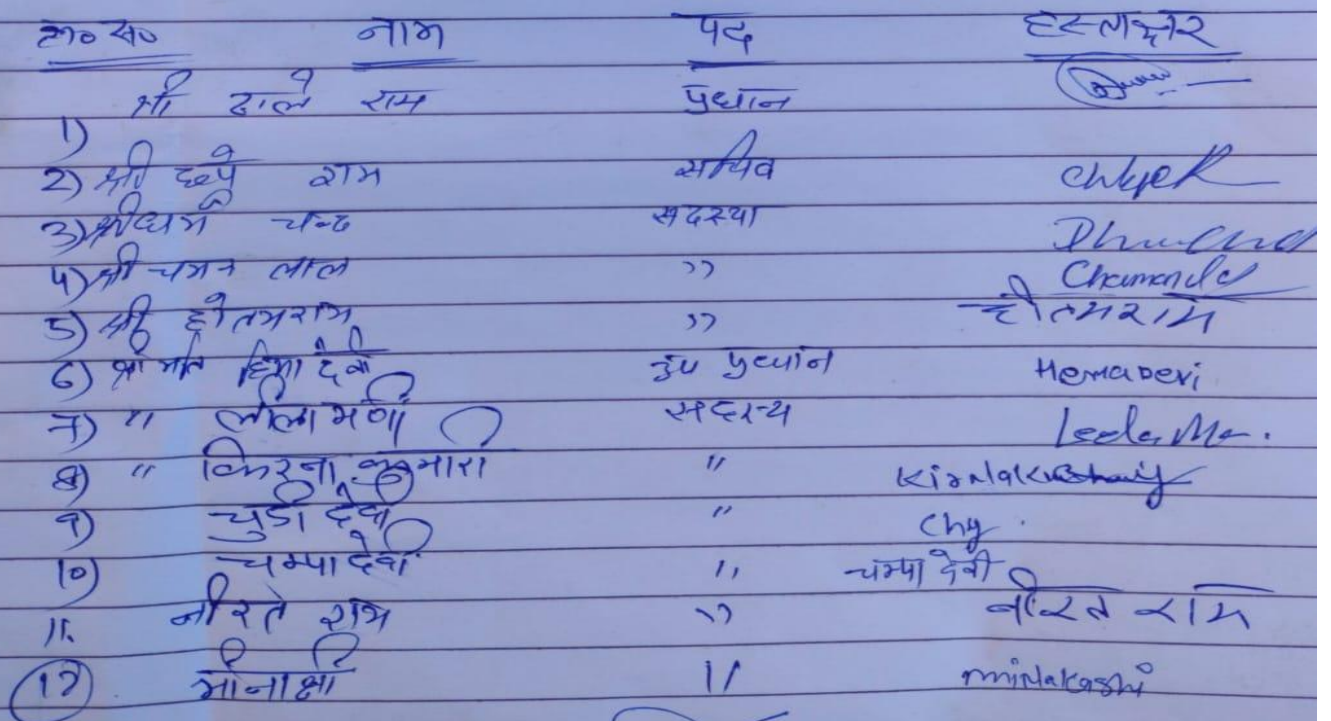 क्र० सं० नाम पद हस्ताक्षर
1) श्री ढाले राम प्रधान
2) श्री छपे राम सचिव
3) श्री धर्म चन्द सदस्या
4) श्री चमन लाल ,, Chamanlal
5) श्री होतमराम ,, होतमराम
6) श्री मति हिमा देवी उप प्रधान Hema Devi
7) " लीला मणी सदस्य Leela
8) " किरना कुमारी " Kirna
9) चुडी देवी "
10) चम्पा देवी " चम्पा देवी
11. नीरते राम ,, नीरत राम
12 मीनाक्षी " minakashi